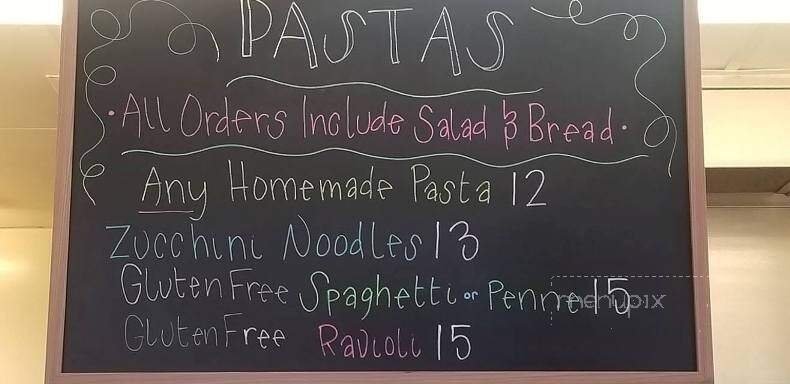 PASTAS
· All Orders Include Salad & Bread ·
Any Homemade Pasta 12
Zucchini Noodles 13
Gluten Free Spaghetti or Penne 15
menupix
Gluten Free Ravioli 15